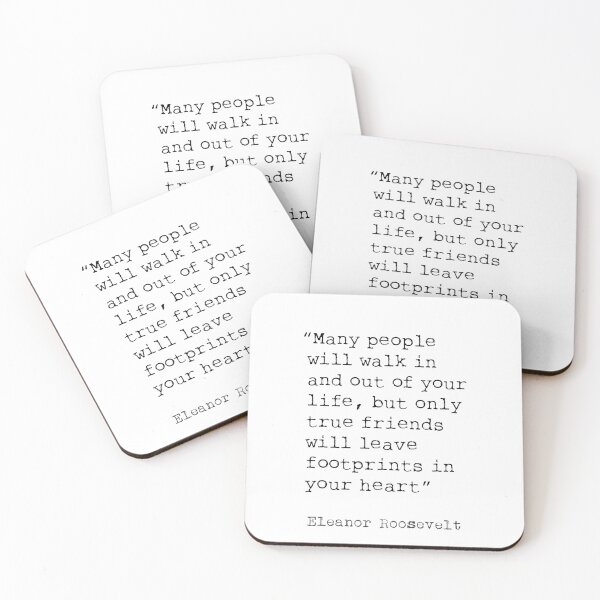 “Many people
will walk in
and out of your
life, but only
in
“Many people
will walk in
and out of your
life, but only
true friends
will leave
footprints in
“Many people
will walk in
and out of your
life, but only
true friends
will leave
footprints
your heart
Eleanor
“Many people
will walk in
and out of your
life, but only
true friends
will leave
footprints in
your heart”
Eleanor Roosevelt